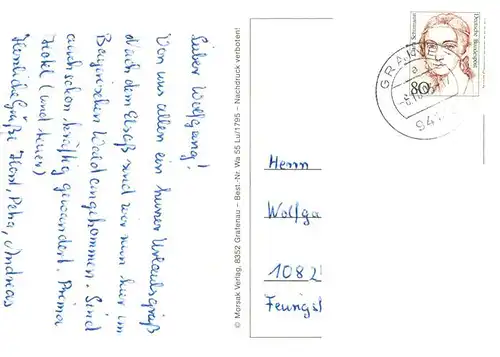 Lieber Wolfgang!
Von uns allen ein kurzer Urlaubsgruß
Nach dem Elsaß sind wir nun hier im
Bayrischen Wald angekommen. Sind
auch schon kräftig gewandert. Prima
Hotel (und teuer)
Herzliche Grüße Horst, Petra, Andreas
© Morsak Verlag, 8352 Grafenau – Best.-Nr. Wa 55 Lu/1795 – Nachdruck verboten!
Schumann
Deutsche Bundespost
80
GRAF
944
Herrn
Wolfga
1082